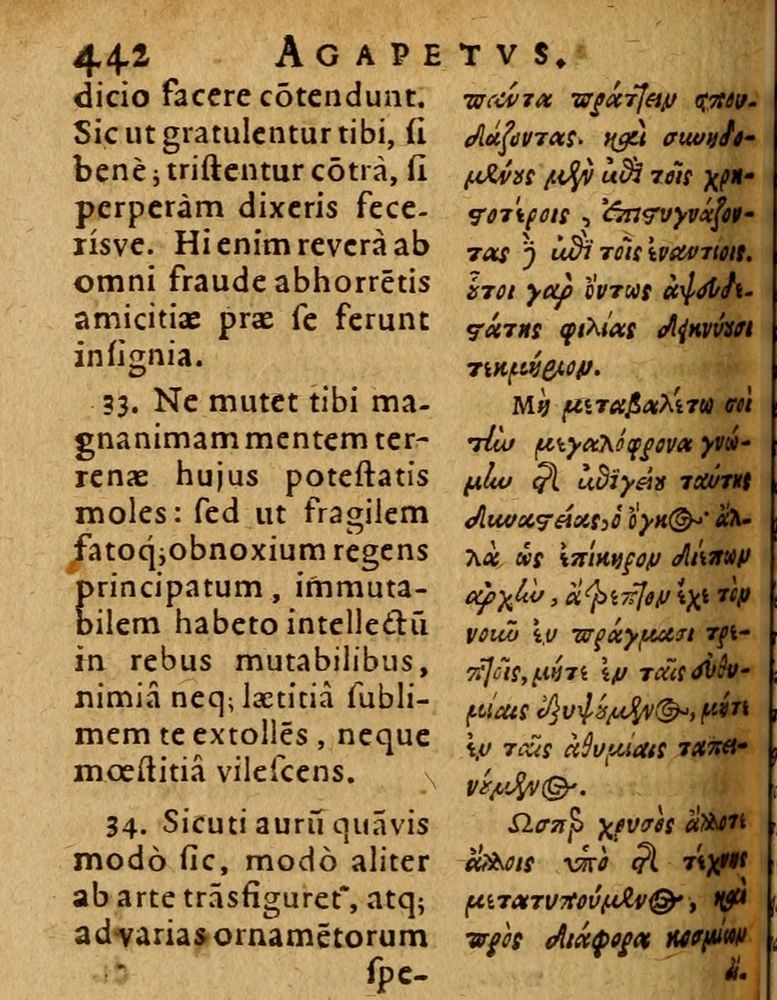 442 AGAPETVS.
dicio facere cõtendunt.
Sic ut gratulentur tibi, ſi
benè; triſtentur cõtrà, ſi
perperàm dixeris fece-
rísve. Hi enim reverà ab
omni fraude abhorrẽtis
amicitiæ præ ſe ferunt
inſignia.
33. Ne mutet tibi ma-
gnanimam mentem ter-
renæ hujus poteſtatis
moles: ſed ut fragilem
fatoq́;obnoxium regens
principatum, im̃muta-
bilem habeto intellectũ
in rebus mutabilibus,
nimiâ neq; lætitiâ ſubli-
mem te extollẽs, neque
mœſtitiâ vileſcens.
34. Sicuti aurũ quãvis
modò ſic, modò aliter
ab arte trãsfiguret᷑, atq;
ad varias ornamẽtorum
ſpe-
πάντα πράττειν σπου-
δάζοντας. καὶ συνηδο-
μένους μὲν ἐπὶ τοῖς χρη-
στοτέροις, ἐπιστυγνάζον-
τας δὲ ἐπὶ τοῖς ἐναντίοις.
οὗτοι γὰρ ὄντως ἀψευδε-
στάτης φιλίας δεικνύουσι
τεκμήριον.
Μὴ μεταβαλέτω σοὶ
τὴν μεγαλόφρονα γνώ-
μην τῆς ἐπιγείου ταύτης
δυναστείας, ὁ ὄγκος· ἀλ-
λὰ ὡς ἐπίκηρον διέπων
ἀρχὴν, ἄτρεπτον ἔχε τὸν
νοῦν ἐν πράγμασι τρε-
πτοῖς, μήτε ἐν ταῖς εὐθυ-
μίαις ἐξυψούμενος, μήτε
ἐν ταῖς ἀθυμίαις ταπει-
νούμενος.
Ωσπερ χρυσὸς ἄλλοτε
ἄλλοις ὑπὸ τῆς τέχνης
μετατυπούμενος, καὶ
πρὸς διάφορα κοσμίων